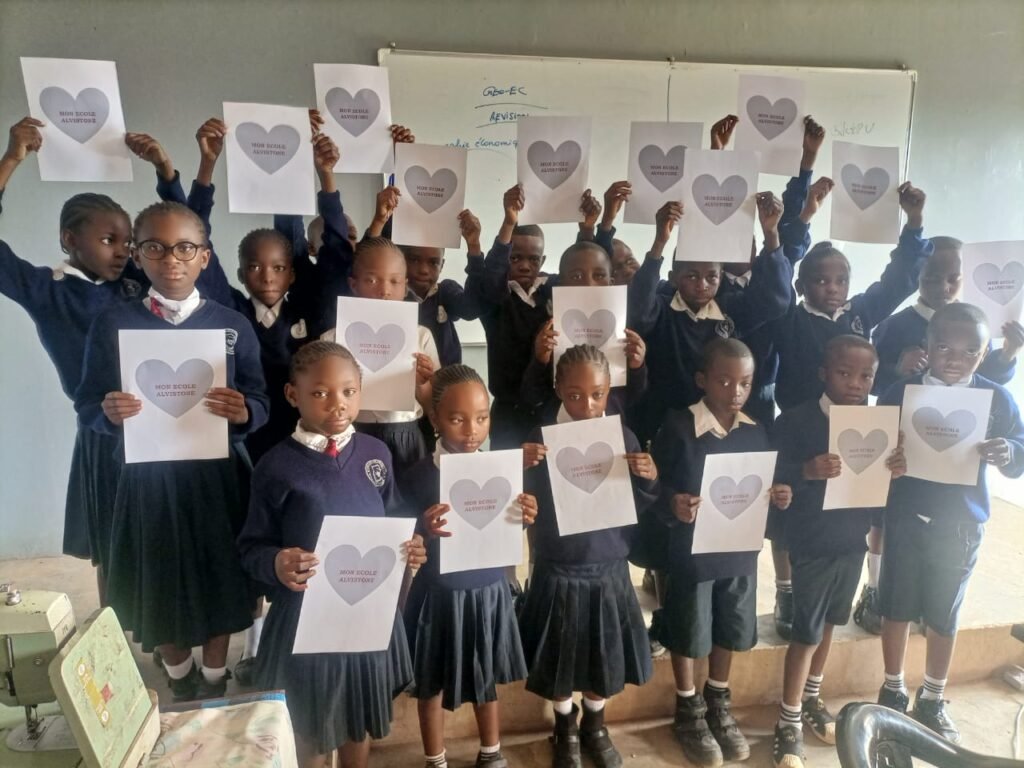 GEO-EC
REVISION
économiq
MON ECOLE
ALVISTONE
MON ECOLE
ALVISTONE
MON ECOLE
ALVISTONE
MON ECOLE
ALVISTONE
MON ECOLE
ALVISTONE
MON ECOLE
ALVISTONE
MON ECOLE
ALVISTONE
MON ECOLE
ALVISTONE
MON ECOLE
ALVISTONE
MON ECOLE
ALVISTONE
MON ECOLE
ALVISTONE
MON ECOLE
ALVISTONE
MON ECOLE
ALVISTONE
MON ECOLE
ALVISTONE
MON ECOLE
ALVISTONE
MON ECOLE
ALVISTONE
MON ECOLE
ALVISTONE
MON ECOLE
ALVISTONE
MON ECOLE
ALVISTONE